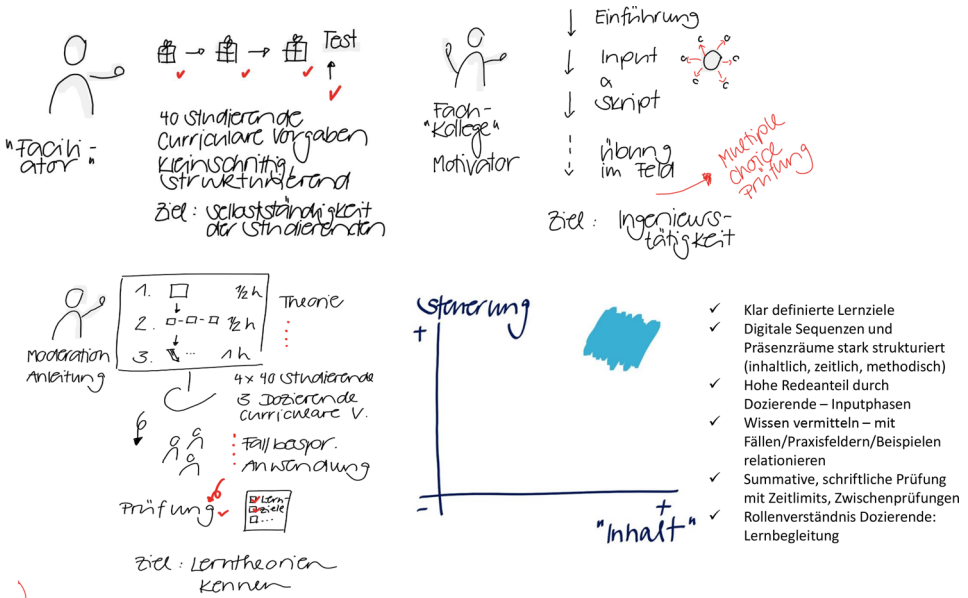 Test
40 Studierende
Curriculare Vorgaben
Kleinschrittig
strukturierend
Ziel: Selbstständigkeit
der Studierenden
"Facilit-
ator"
Fach-
"Kollege"
Motivator
Einführung
Input
a
Skript
Übung
im Feld
Multiple
choice
Prüfung
Ziel: Ingenieurs-
tätigkeit
1. 1/2 h
2. 1/2 h
3. ... 1 h
Theorie
Moderation
Anleitung
4x40 Studierende
3 Dozierende
curriculare V.
Fallbespr.
Anwendung
Prüfung
Lern-
ziele
...
Ziel: Lerntheorien
kennen
Steuerung
+
-
+
"Inhalt"
✓ Klar definierte Lernziele
✓ Digitale Sequenzen und
Präsenzräume stark strukturiert
(inhaltlich, zeitlich, methodisch)
✓ Hohe Redeanteil durch
Dozierende – Inputphasen
✓ Wissen vermitteln – mit
Fällen/Praxisfeldern/Beispielen
relationieren
✓ Summative, schriftliche Prüfung
mit Zeitlimits, Zwischenprüfungen
✓ Rollenverständnis Dozierende:
Lernbegleitung